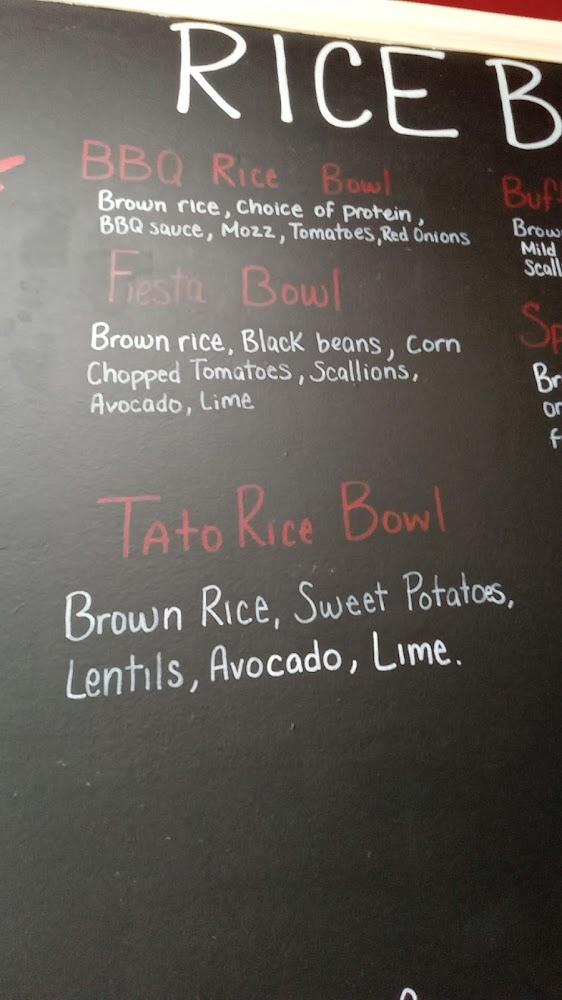 RICE B
BBQ Rice Bowl
Brown rice, Choice of Protein,
BBQ sauce, Mozz, Tomatoes, Red Onions
Fiesta Bowl
Brown rice, Black beans, Corn
Chopped Tomatoes, Scallions,
Avocado, Lime
Tato Rice Bowl
Brown Rice, Sweet Potatoes,
Lentils, Avocado, Lime.
Buf
Brow
Mild
Scall
Sp
Br
or
f